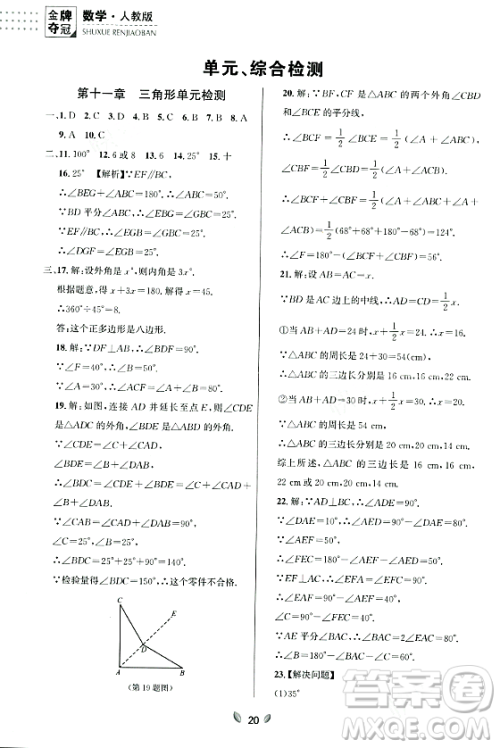 金牌夺冠 数学·人教版
SHUXUE RENJIAOBAN
单元、综合检测
第十一章 三角形单元检测
一、1. D 2. C 3. D 4. B 5. C 6. B 7. C 8. B
9. A 10. C
二、11. 100° 12. 6 或 8 13. 6 14. 25° 15. 十
16. 25° 【解析】∵EF∥BC,
∴∠BEG+∠ABC=180°. ∴∠ABC=50°.
∵BD 平分∠ABC, ∴∠DBC=25°.
∵EF∥BC, ∴∠DGF=∠DBC.
∴∠DGF=25°.
三、17. 解：设外角是 x°，则内角是 3x°.
根据题意，得 x+3x=180. ∴x=45.
∴360°÷45°=8.
答：这个正多边形是八边形.
18. 解：∵DF⊥AB, ∴∠BDF=90°.
∵∠F=40°, ∴∠B=50°.
∵∠A=35°, ∴∠ACF=∠A+∠B=85°.
19. 解：如图，连接 AD 并延长至点 E, 则∠CDE
是△ADC 的外角，∠BDE 是△ABD 的外角.
∴∠CDE=∠C+∠CAD,
∠BDE=∠B+∠DAB.
∴∠BDC=∠CDE+∠BDE
=∠C+∠CAD+∠B+∠DAB.
∴∠BDC=∠B+∠C+∠A.
∵∠A=90°,
∠B=25°, ∠C=25°,
∴∠BDC=140°.
∵检验量得∠BDC=150°, ∴这个零件不合格.
C
E
D
A
B
(第 19 题图)
20. 解：∵BF, CF 是△ABC 的两个外角∠CBD,
∠BCE 的平分线，
∴∠CBF=1/2∠CBD=1/2(∠A+∠ACB),
∠BCF=1/2∠BCE=1/2(∠A+∠ABC).
∴∠CBF+∠BCF=1/2(∠A+∠A+∠ABC+
∠ACB)=1/2(68°+68°+180°-68°)=124°.
∴∠F=180°-124°=56°.
21. 解：设 AB=AC=x.
∵BD 是△ABC 边上的中线，∴AD=DC=1/2x.
①当 AB+AD=24 时，x+1/2x=24, ∴x=16.
∵△ABC 的周长是 54 cm,
∴△ABC 的三边长分别是 16 cm, 16 cm, 22 cm.
②当 AB+AD=30 时，x+1/2x=30, ∴x=20.
∵△ABC 的周长是 54 cm,
∴△ABC 的三边长分别是 20 cm, 20 cm, 14 cm.
综上所述，△ABC 的三边长是 16 cm, 16 cm,
22 cm 或 20 cm, 20 cm, 14 cm.
22. 解：∵AD⊥BC, ∴∠ADE=90°.
∵∠DAE=10°, ∴∠AED=80°.
∵∠AEF=50°,
∴∠FEC=180°-∠AEF-∠AED=50°.
∵EF⊥AC, ∴∠AFE=∠EFC=90°.
∴∠EAF=90°-∠AEF=40°.
∴∠C=90°-∠FEC=40°.
∵AE 平分∠BAC, ∴∠BAC=2∠EAF=80°.
∴∠B=180°-∠BAC-∠C=60°.
23. 【解决问题】
(1)35°
20
答案圈
MXQE.COM